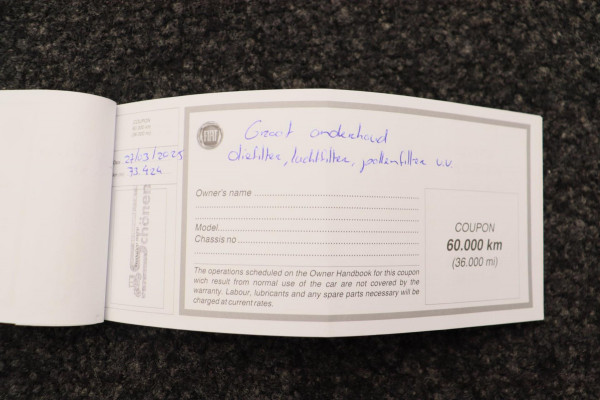 COUPON
60.000 km
(36.000 mi)
27/03/2025
73.424
Schönen
FIAT
Groot onderhoud
oliefilter, luchtfilter, pollenfilter v.v.
Owner's name
Model
Chassis no
The operations scheduled on the Owner Handbook for this coupon
wich result from normal use of the car are not covered by the
warranty. Labour, lubricants and any spare parts necessary will be
charged at current rates.
COUPON
60.000 km
(36.000 mi)